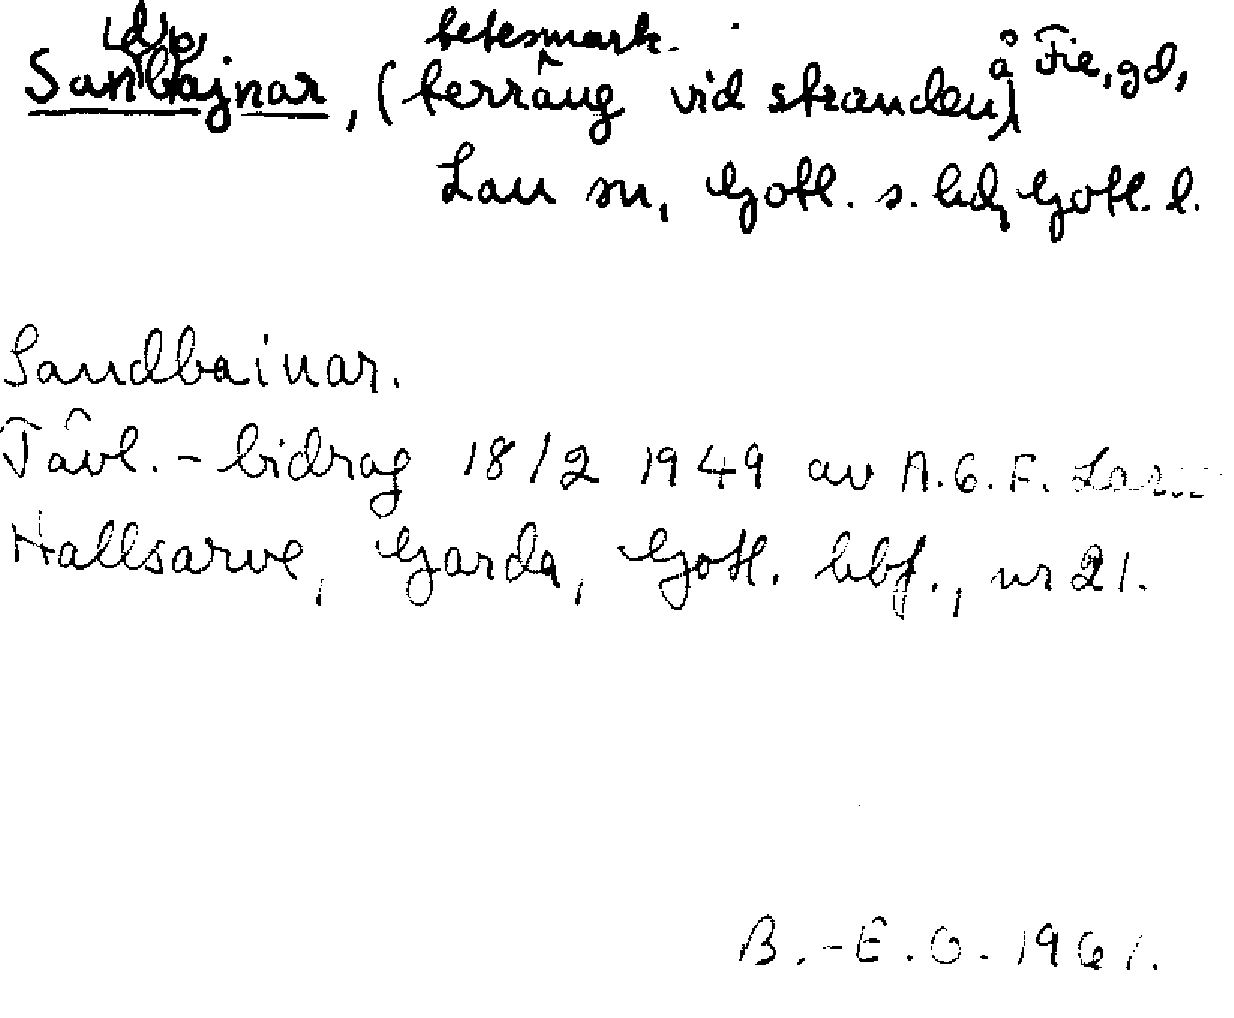 (d)(e)
betesmark.
Sanbajnar, (terräng vid stranden) å Fie, gd,
Lau sn, Gotl. s. hd, Gotl. l.
Sandbainar.
Tävl. - bidrag 18/2 1949 av A.G.F.
Hallsarve, Garda, Gotl. hbf., nr 21.
B.-E.O. 1961.